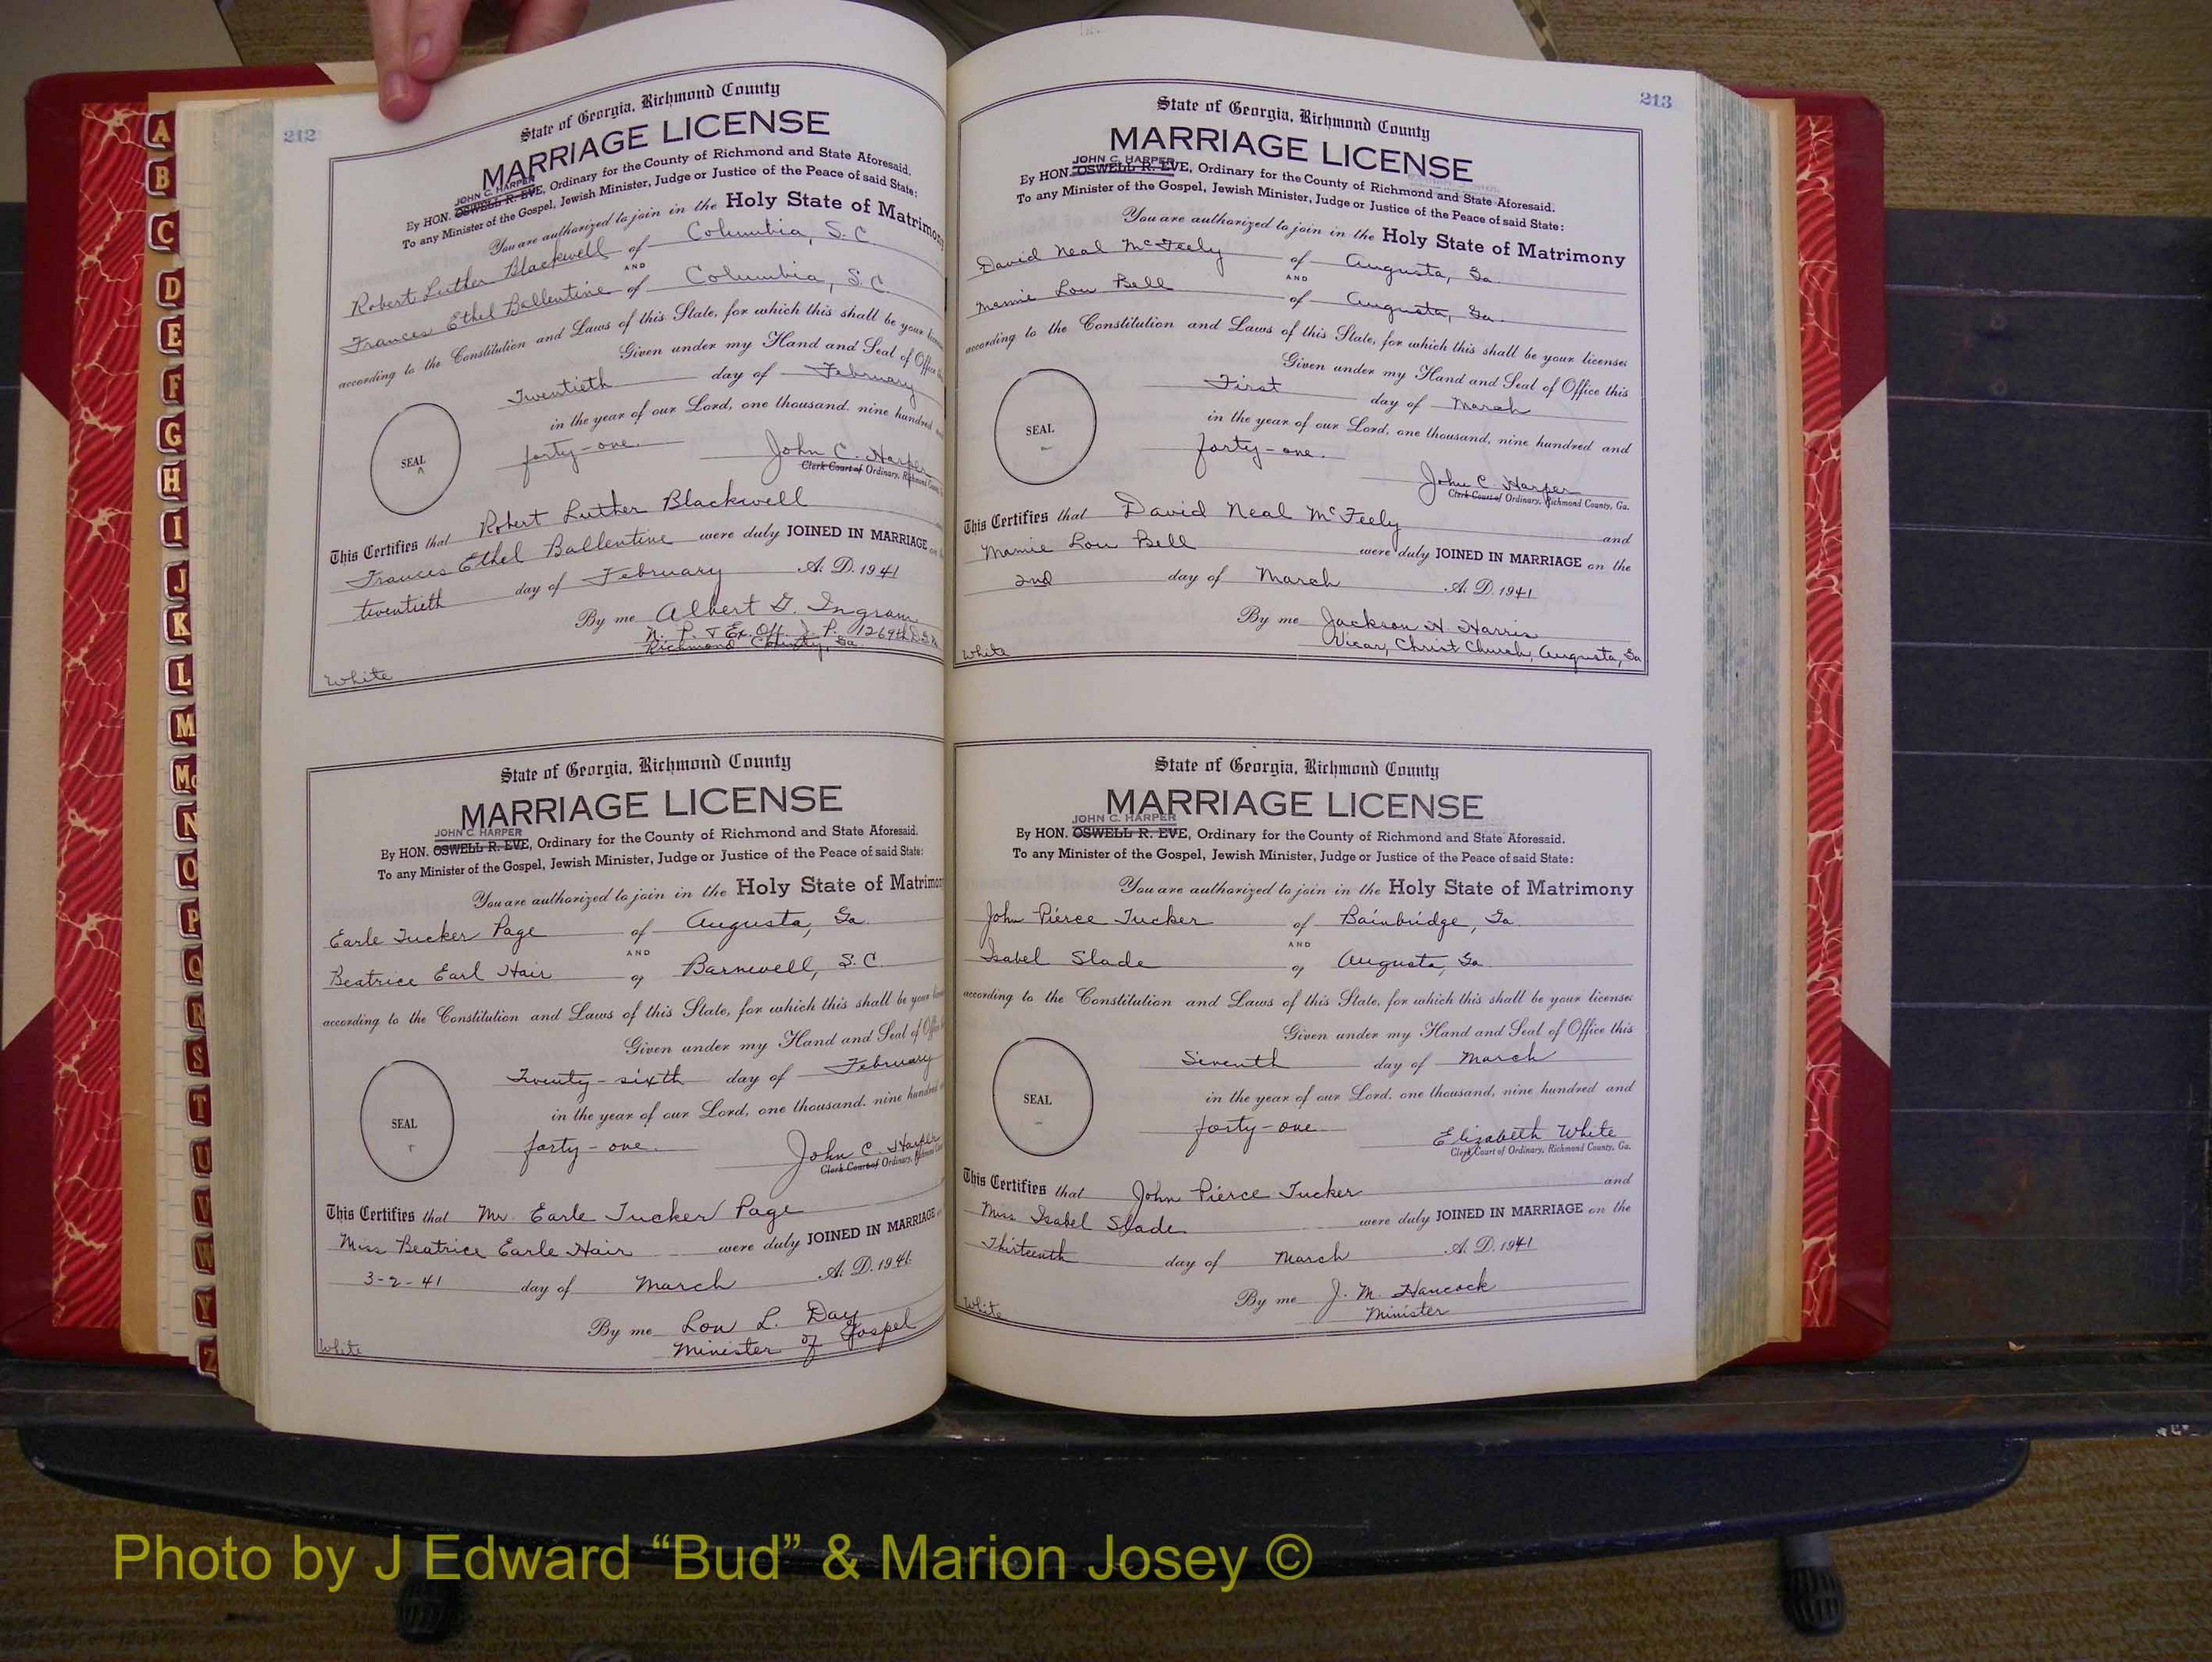 212
State of Georgia, Richmond County
MARRIAGE LICENSE
JOHN C. HARPER
By HON. OSWELL R. EVE, Ordinary for the County of Richmond and State Aforesaid.
To any Minister of the Gospel, Jewish Minister, Judge or Justice of the Peace of said State:
You are authorized to join in the Holy State of Matrimony
Robert Luther Blackwell of Columbia, S.C.
AND
Frances Ethel Ballentine of Columbia, S.C.
according to the Constitution and Laws of this State, for which this shall be your license
Given under my Hand and Seal of Office
Twentieth day of February
in the year of our Lord, one thousand, nine hundred
forty-one.
SEAL
John C. Harper
Clerk Court of Ordinary, Richmond County
This Certifies that Robert Luther Blackwell
Frances Ethel Ballentine were duly JOINED IN MARRIAGE on
twentieth day of February A. D. 1941
By me Albert G. Ingram
N. P. & Ex. Off. J. P. 1269th
Richmond County, Ga
White
State of Georgia, Richmond County
MARRIAGE LICENSE
JOHN C. HARPER
By HON. OSWELL R. EVE, Ordinary for the County of Richmond and State Aforesaid.
To any Minister of the Gospel, Jewish Minister, Judge or Justice of the Peace of said State:
You are authorized to join in the Holy State of Matrimony
Earle Tucker Page of Augusta, Ga.
AND
Beatrice Earl Hair of Barnwell, S.C.
according to the Constitution and Laws of this State, for which this shall be your
Given under my Hand and Seal of Office
Twenty-sixth day of February
in the year of our Lord, one thousand, nine hundred
forty-one.
SEAL
John C. Harper
Clerk Court of Ordinary, Richmond County
This Certifies that Mr. Earle Tucker Page
Miss Beatrice Earle Hair were duly JOINED IN MARRIAGE
3-2-41 day of March A. D. 1941
By me Lon L. Day
Minister of Gospel
White
213
State of Georgia, Richmond County
MARRIAGE LICENSE
JOHN C. HARPER
By HON. OSWELL R. EVE, Ordinary for the County of Richmond and State Aforesaid.
To any Minister of the Gospel, Jewish Minister, Judge or Justice of the Peace of said State:
You are authorized to join in the Holy State of Matrimony
David Neal McFeely of Augusta, Ga.
AND
Mamie Lou Bell of Augusta, Ga.
according to the Constitution and Laws of this State, for which this shall be your license:
Given under my Hand and Seal of Office this
First day of March
in the year of our Lord, one thousand, nine hundred and
forty-one.
SEAL
John C. Harper
Clerk Court of Ordinary, Richmond County, Ga.
This Certifies that David Neal McFeely and
Mamie Lou Bell were duly JOINED IN MARRIAGE on the
2nd day of March A. D. 1941
By me Jackson H. Harris
Vicar, Christ Church, Augusta, Ga
White
State of Georgia, Richmond County
MARRIAGE LICENSE
JOHN C. HARPER
By HON. OSWELL R. EVE, Ordinary for the County of Richmond and State Aforesaid.
To any Minister of the Gospel, Jewish Minister, Judge or Justice of the Peace of said State:
You are authorized to join in the Holy State of Matrimony
John Pierce Tucker of Bainbridge, Ga.
AND
Isabel Slade of Augusta, Ga.
according to the Constitution and Laws of this State, for which this shall be your license:
Given under my Hand and Seal of Office this
Seventh day of March
in the year of our Lord, one thousand, nine hundred and
forty-one
SEAL
Elizabeth White
Clerk Court of Ordinary, Richmond County, Ga.
This Certifies that John Pierce Tucker and
Miss Isabel Slade were duly JOINED IN MARRIAGE on the
Thirteenth day of March A. D. 1941
By me J. M. Hancock
Minister
White
A
B
C
D
E
F
G
H
I
J
K
L
M
Mc
N
O
P
Q
R
S
T
U
V
W
Y
Z
Photo by J Edward “Bud” & Marion Josey ©